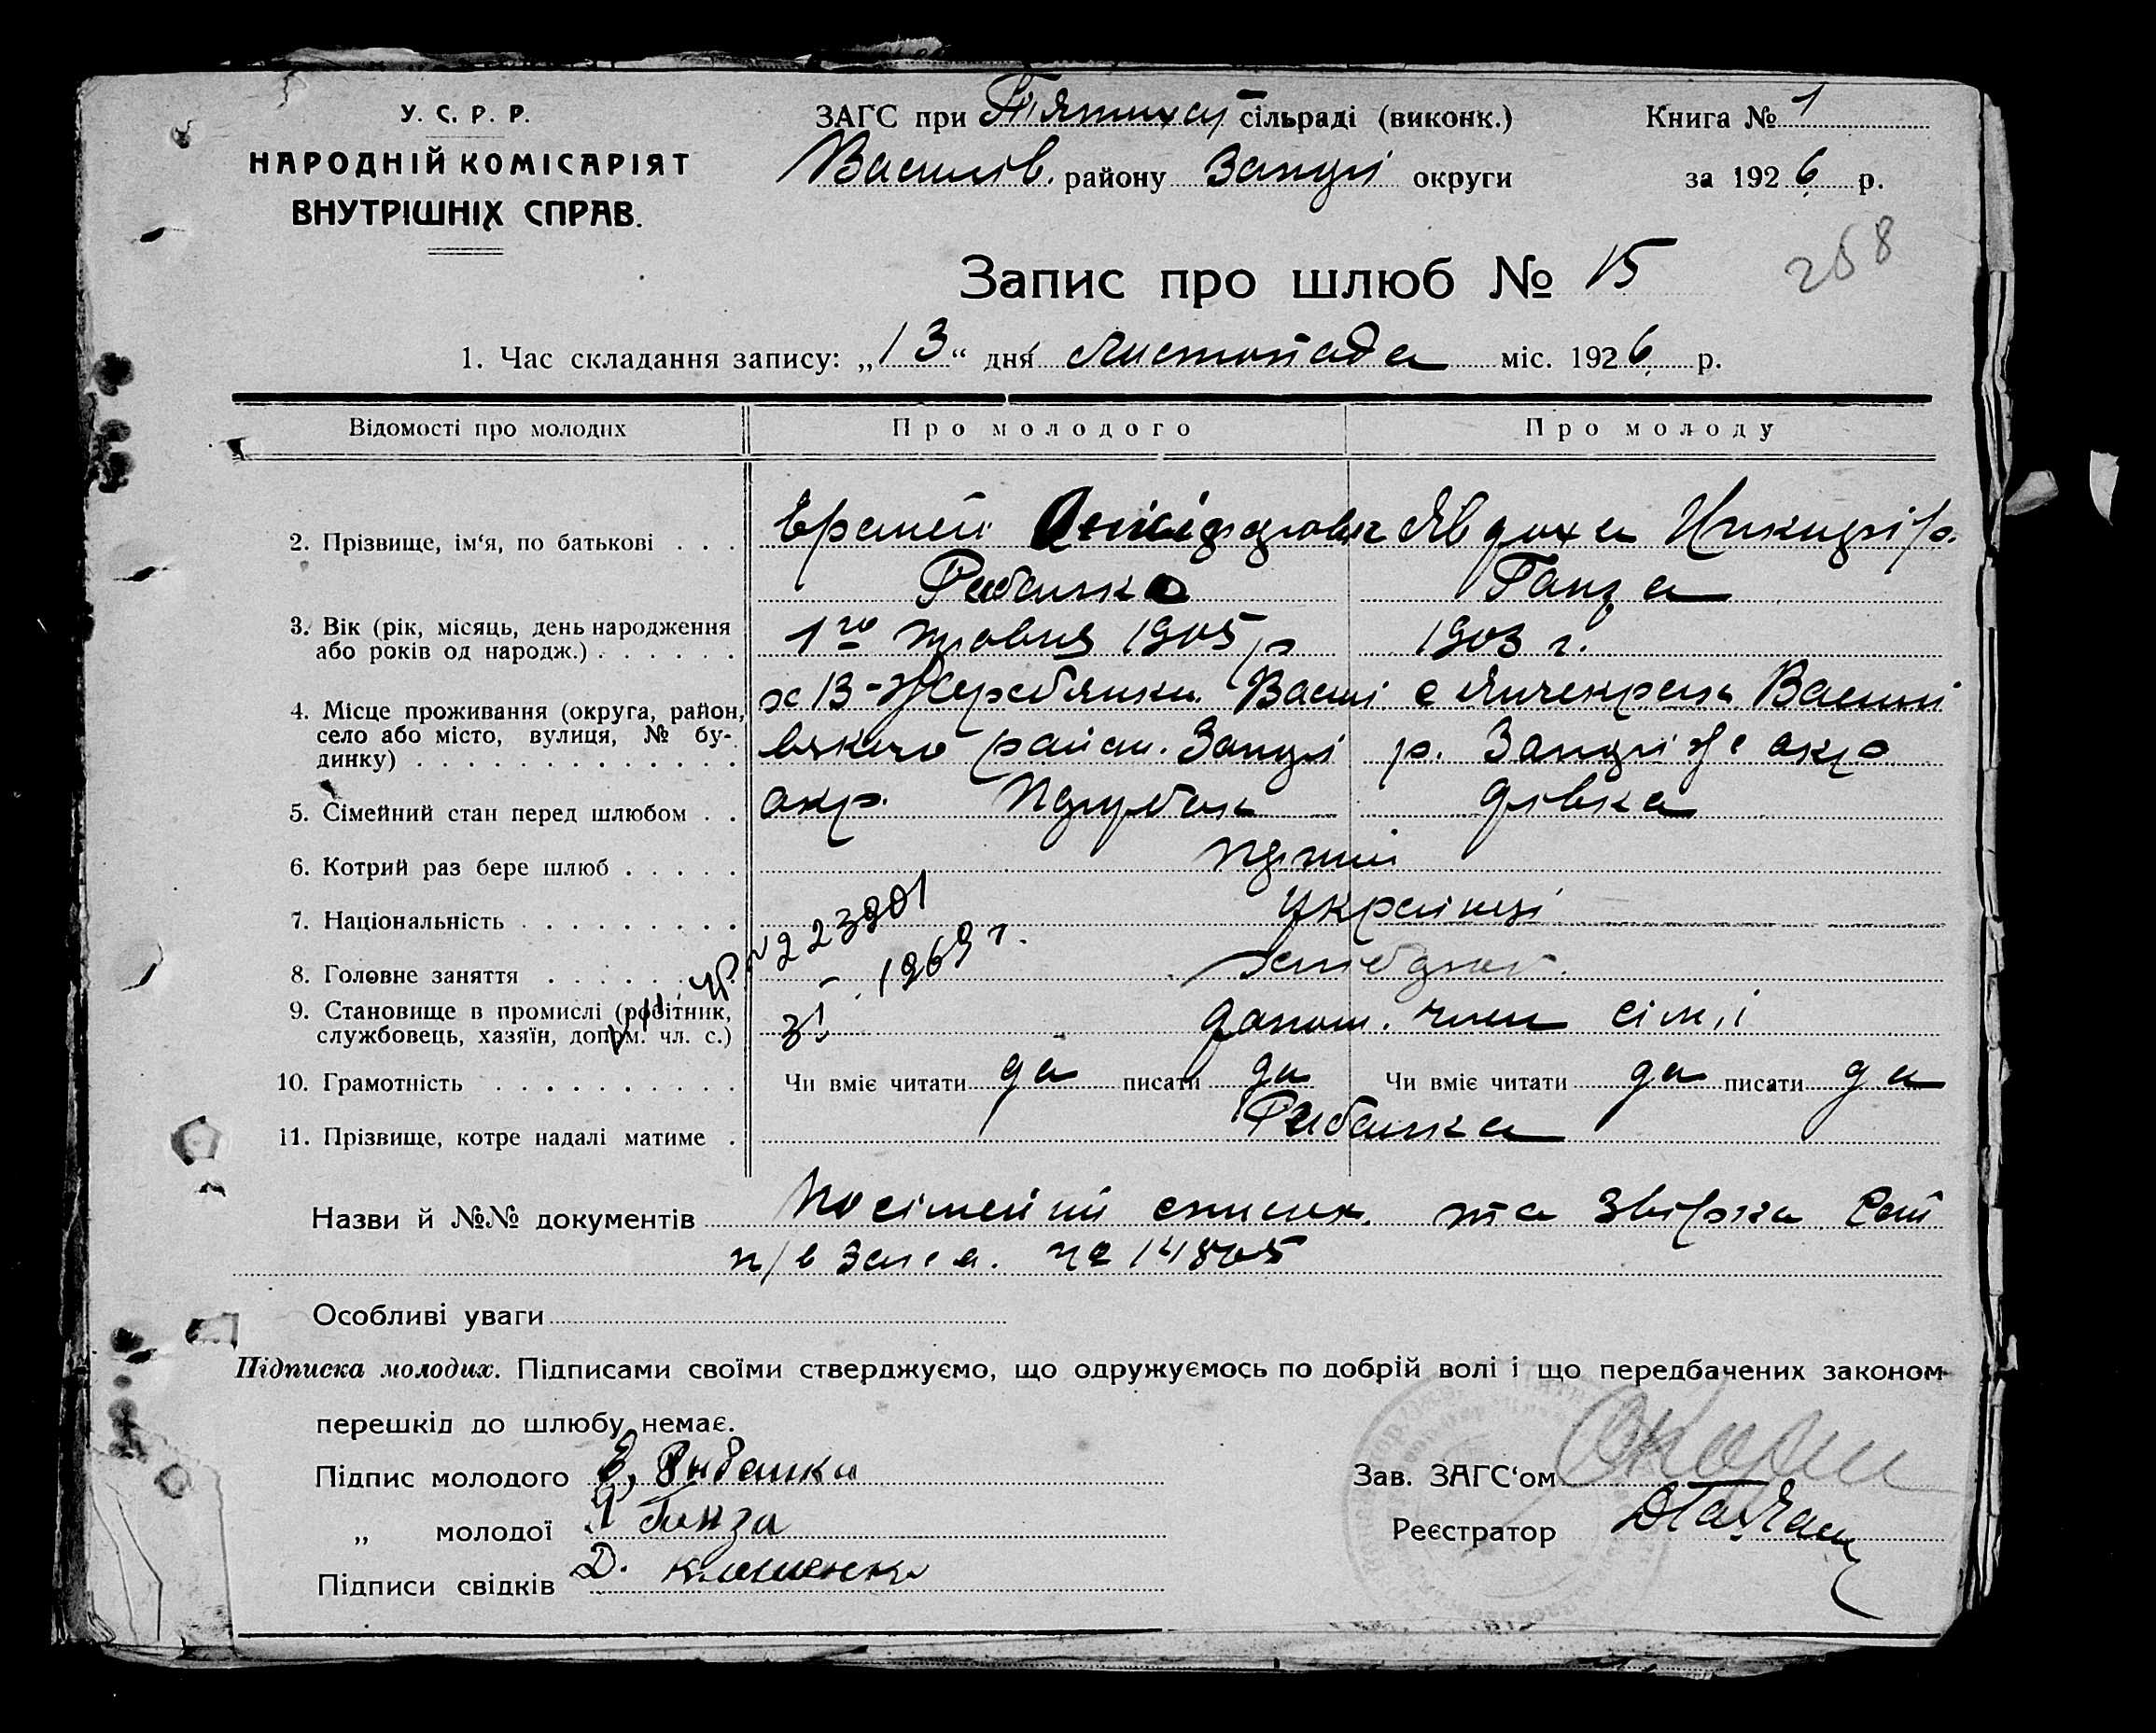 У. С. Р. Р.
НАРОДНІЙ КОМІСАРІЯТ
ВНУТРІШНІХ СПРАВ.
ЗАГС при Пятихат сільраді (виконк.)
Василів. району Запорі округи
Книга № 1
за 1926 р.
258
Запис про шлюб № 15
1. Час складання запису: „13“ дня Листопада міс. 1926 р.
Відомості про молодих Про молодого Про молоду
2. Прізвище, ім‘я, по батькові . . . Явдоха Никифорів
Рибалко Ганза
3. Вік (рік, місяць, день народження
або років од народж.) . . . . . . 1го травня 1905 р 1903 г.
4. Місце проживання (округа, район,
село або місто, вулиця, № бу-
динку) . . . . . . . . . . . . .
х 13-Жеребянки Василі Василі
вського район. Запорі р. Запоріж окр
окр.
5. Сімейний стан перед шлюбом . . Парубок дівка
6. Котрий раз бере шлюб . . . . . перший
7. Національність . . . . . . . . . Українці
8. Головне заняття . . . . . . . . хлібороб.
223901
1969 г.
9. Становище в промислі (робітник,
службовець, хазяїн, допом. чл. с.) допом. член сімʼї
10. Грамотність . . . . . . . . . Чи вміє читати да писати да Чи вміє читати да писати да
11. Прізвище, котре надалі матиме . Рибалка
Назви й №№ документів Посімейний список та Звірка
п/в Загса. № 14805
Особливі уваги
Підписка молодих. Підписами своїми стверджуємо, що одружуємось по добрій волі і що передбачених законом
перешкід до шлюбу немає.
Підпис молодого Е. Рибалка
„ молодої Я Ганза
Підписи свідків Д. Клименко
Зав. ЗАГС‘ом
Реєстратор